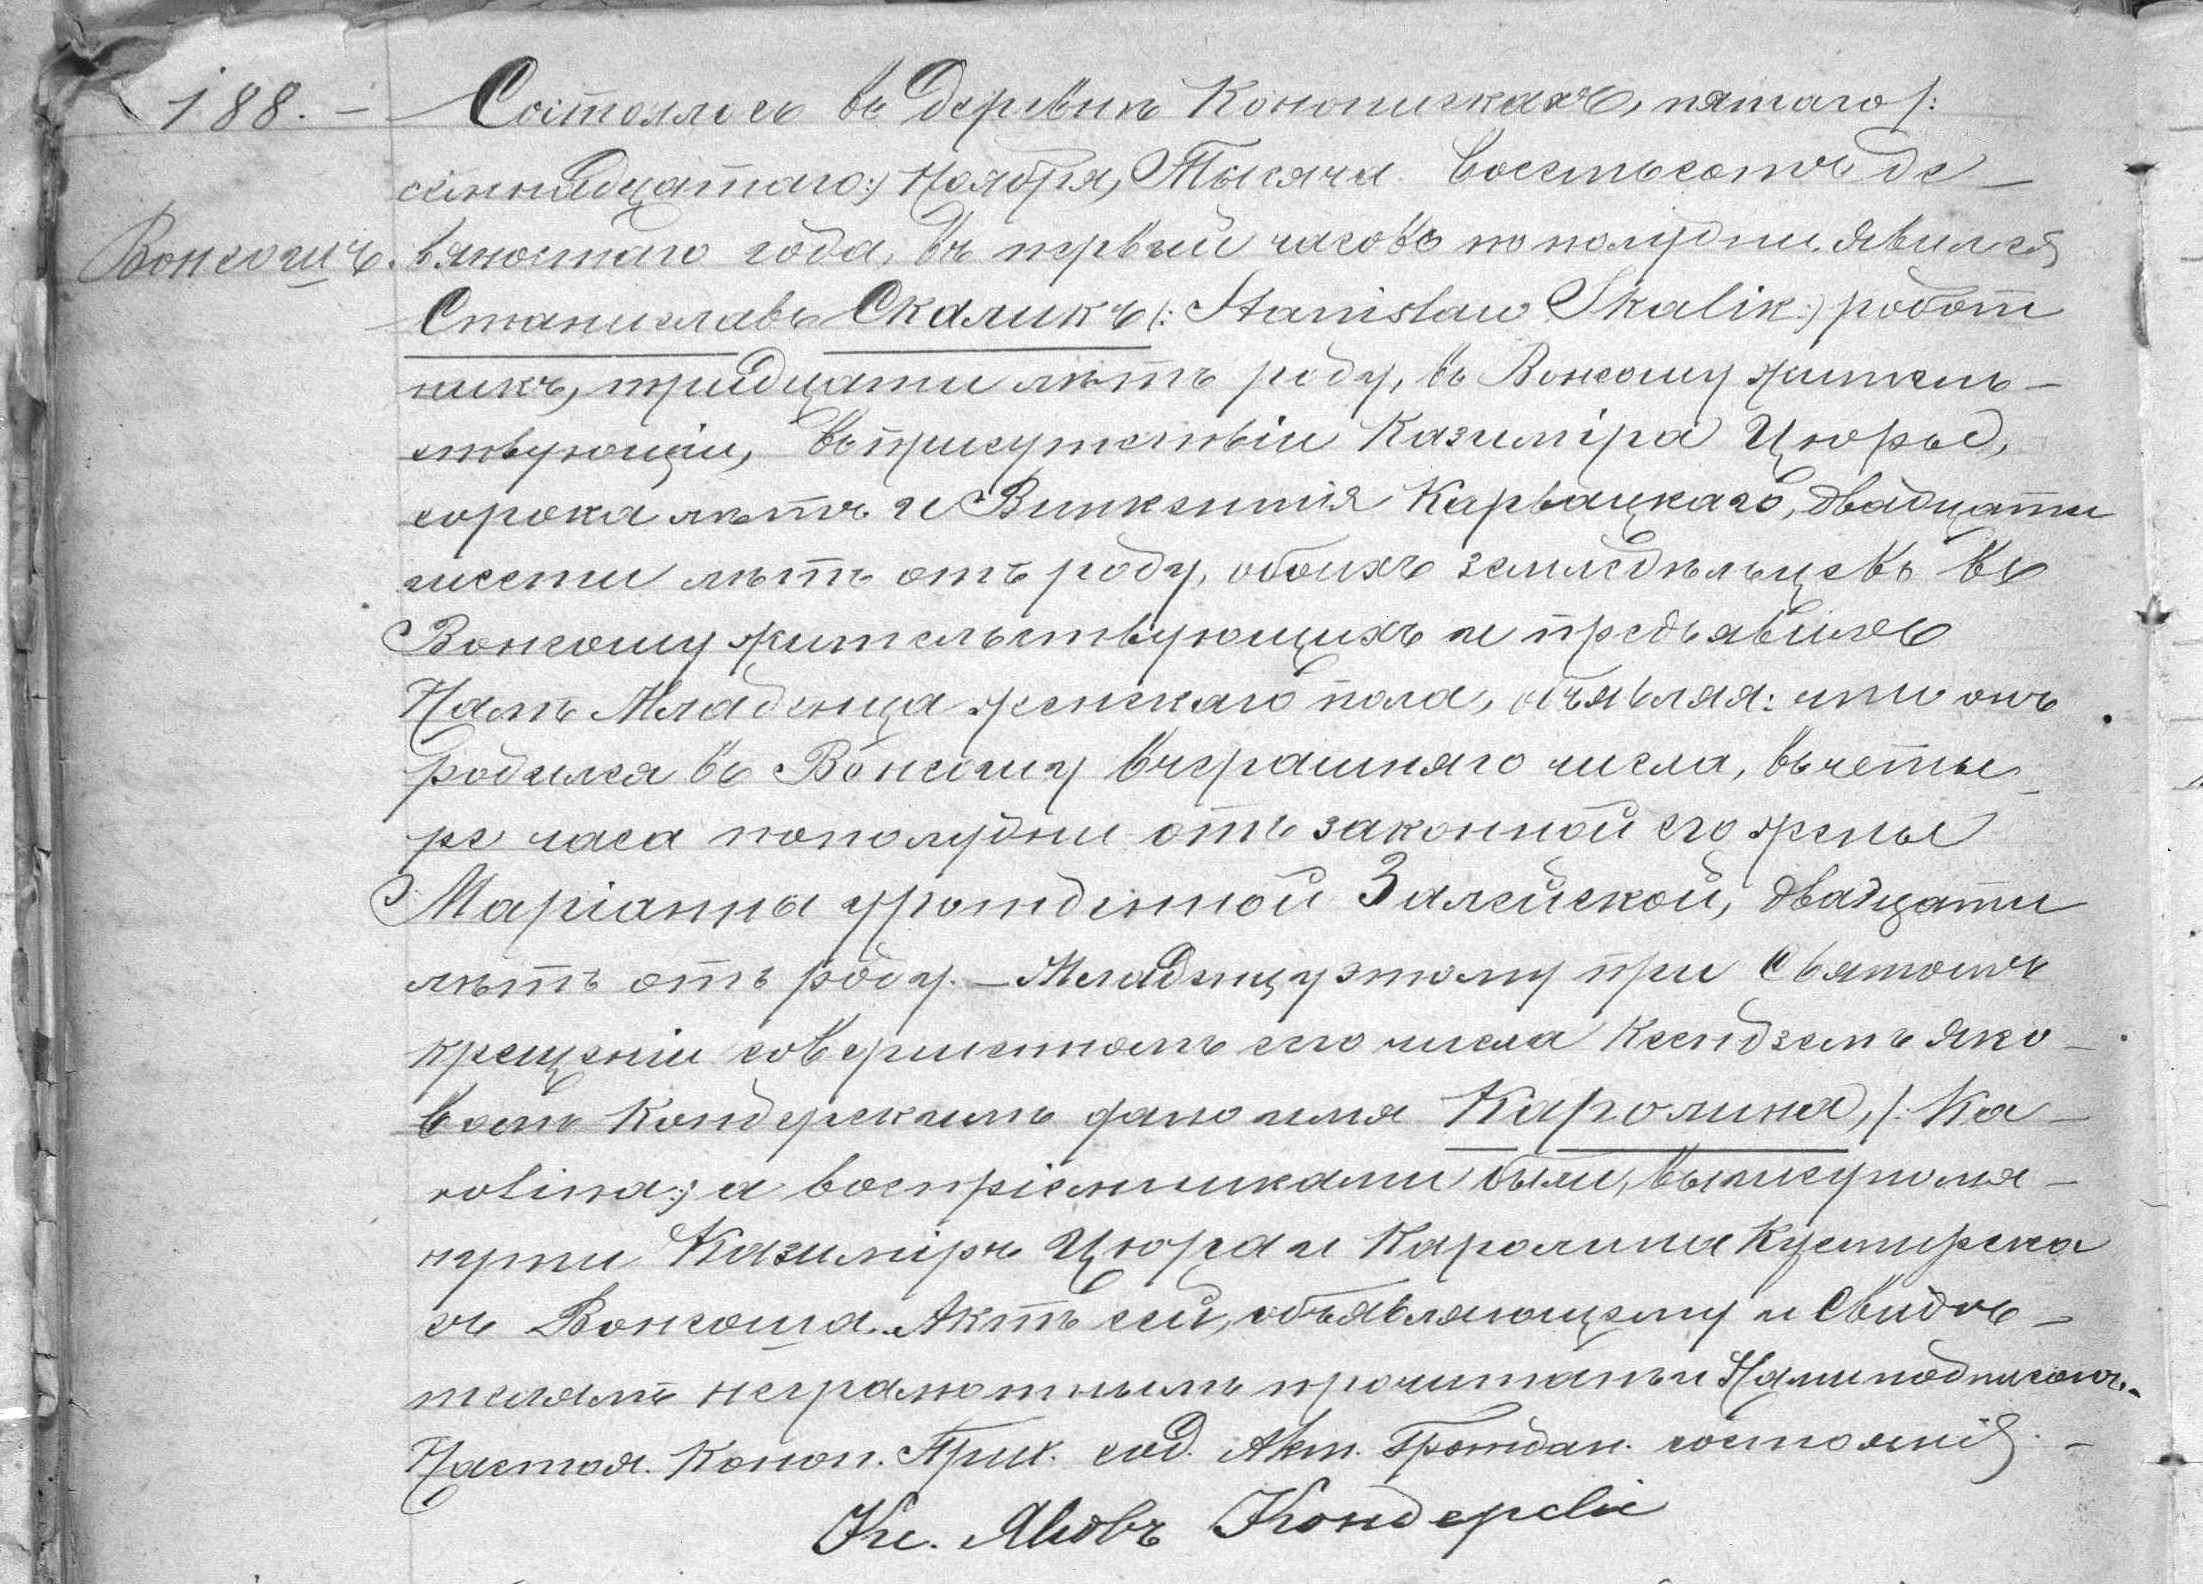 188. –
Состоялось въ деревнѣ Конопискахъ, пятаго /:
семнадцатаго:/ Ноября, Тысяча восемьсотъ де –
Вонсошъ.
вяностаго года, въ первый часовъ по полудни. явился
Станиславъ Скаликъ /: Stanisław Skalik:/ работ
никъ, тридцати лѣтъ роду, въ Вонсошу житель –
ствующіи, въ присутствіи Казиміра Цюры,
сорока лѣтъ и Винкентія Карвацкаго, двадцати
шести лѣтъ отъ роду, обоихъ земледѣльцевъ въ
Вонсошу жительствующихъ и предъявилъ
Намъ Младенца женскаго пола, объявляя: что онъ
родился въ Вонсошу вчерашняго числа, въ четы
ре часа пополудни отъ законной его жены
Маріанны урожденной Залейской, двадцати
лѣтъ отъ роду. – Младенцу этому при Святомъ
крещеніи совершенномъ сего числа Ксендземъ Яко –
вомъ Кондерскимъ дано имя Каролина, /: Ka –
rolina:/ а воспріемниками были, вышеупомя –
нутый Казиміръ Цюра и Каролина
съ Вонсоша. Актъ сей, объявляющему и Свидѣ –
телямъ неграмотнымъ прочитанъ и Нами подписанъ. –
Настоя. Коноп. Прих. сод. Акт. Граждан. состоянія. –
Кс. Яковъ Кондерскій